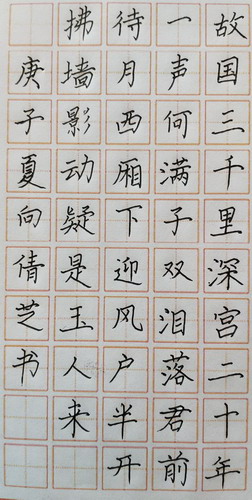 故国三千里深宫二十年
一声何满子双泪落君前
待月西厢下迎风户半开
拂墙影动疑是玉人来
庚子夏向倩芝书